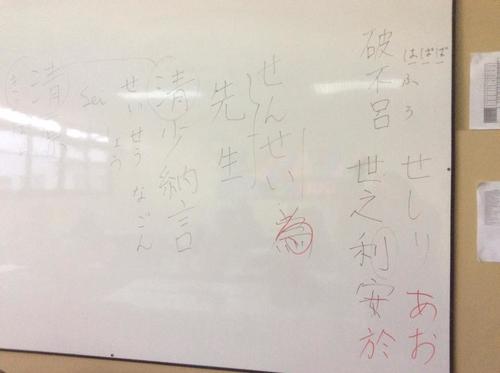 はばば
ふろ せしり あお
破不呂 世之利安於
せんせい 為
先生
清少納言
せい せう なごん
しょう
sei
清